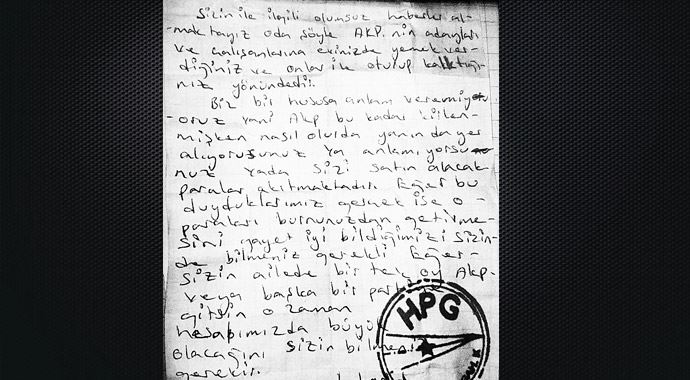 Sizin ile ilgili olumsuz haberler al-
-maktayız oda şöyle AKP.nin adayları
ve çalışanlarına evinizde yemek ver-
diğiniz ve onlar ile oturup kalktığı-
nız yönündedir.
Biz bir hususa anlam veremiy
-oruz yani Akp bu kadar kirlen-
mişken nasıl olurda yanında yer
alıyorsunuz ya anlamıyorsu
nuz yada sizi satın alacak
paralar akıtmaktadır. Eğer bu
duyduklarımız gerçek ise o-
paraları burnunuzdan getirme-
sini gayet iyi bildiğimizi sizin-
de bilmeniz gerekli Eğer-
sizin ailede bir tek oy Akp-
veya başka bir
gitsin o zaman
hesabımızda büyük
olacağını sizin
gerekir.
HPG